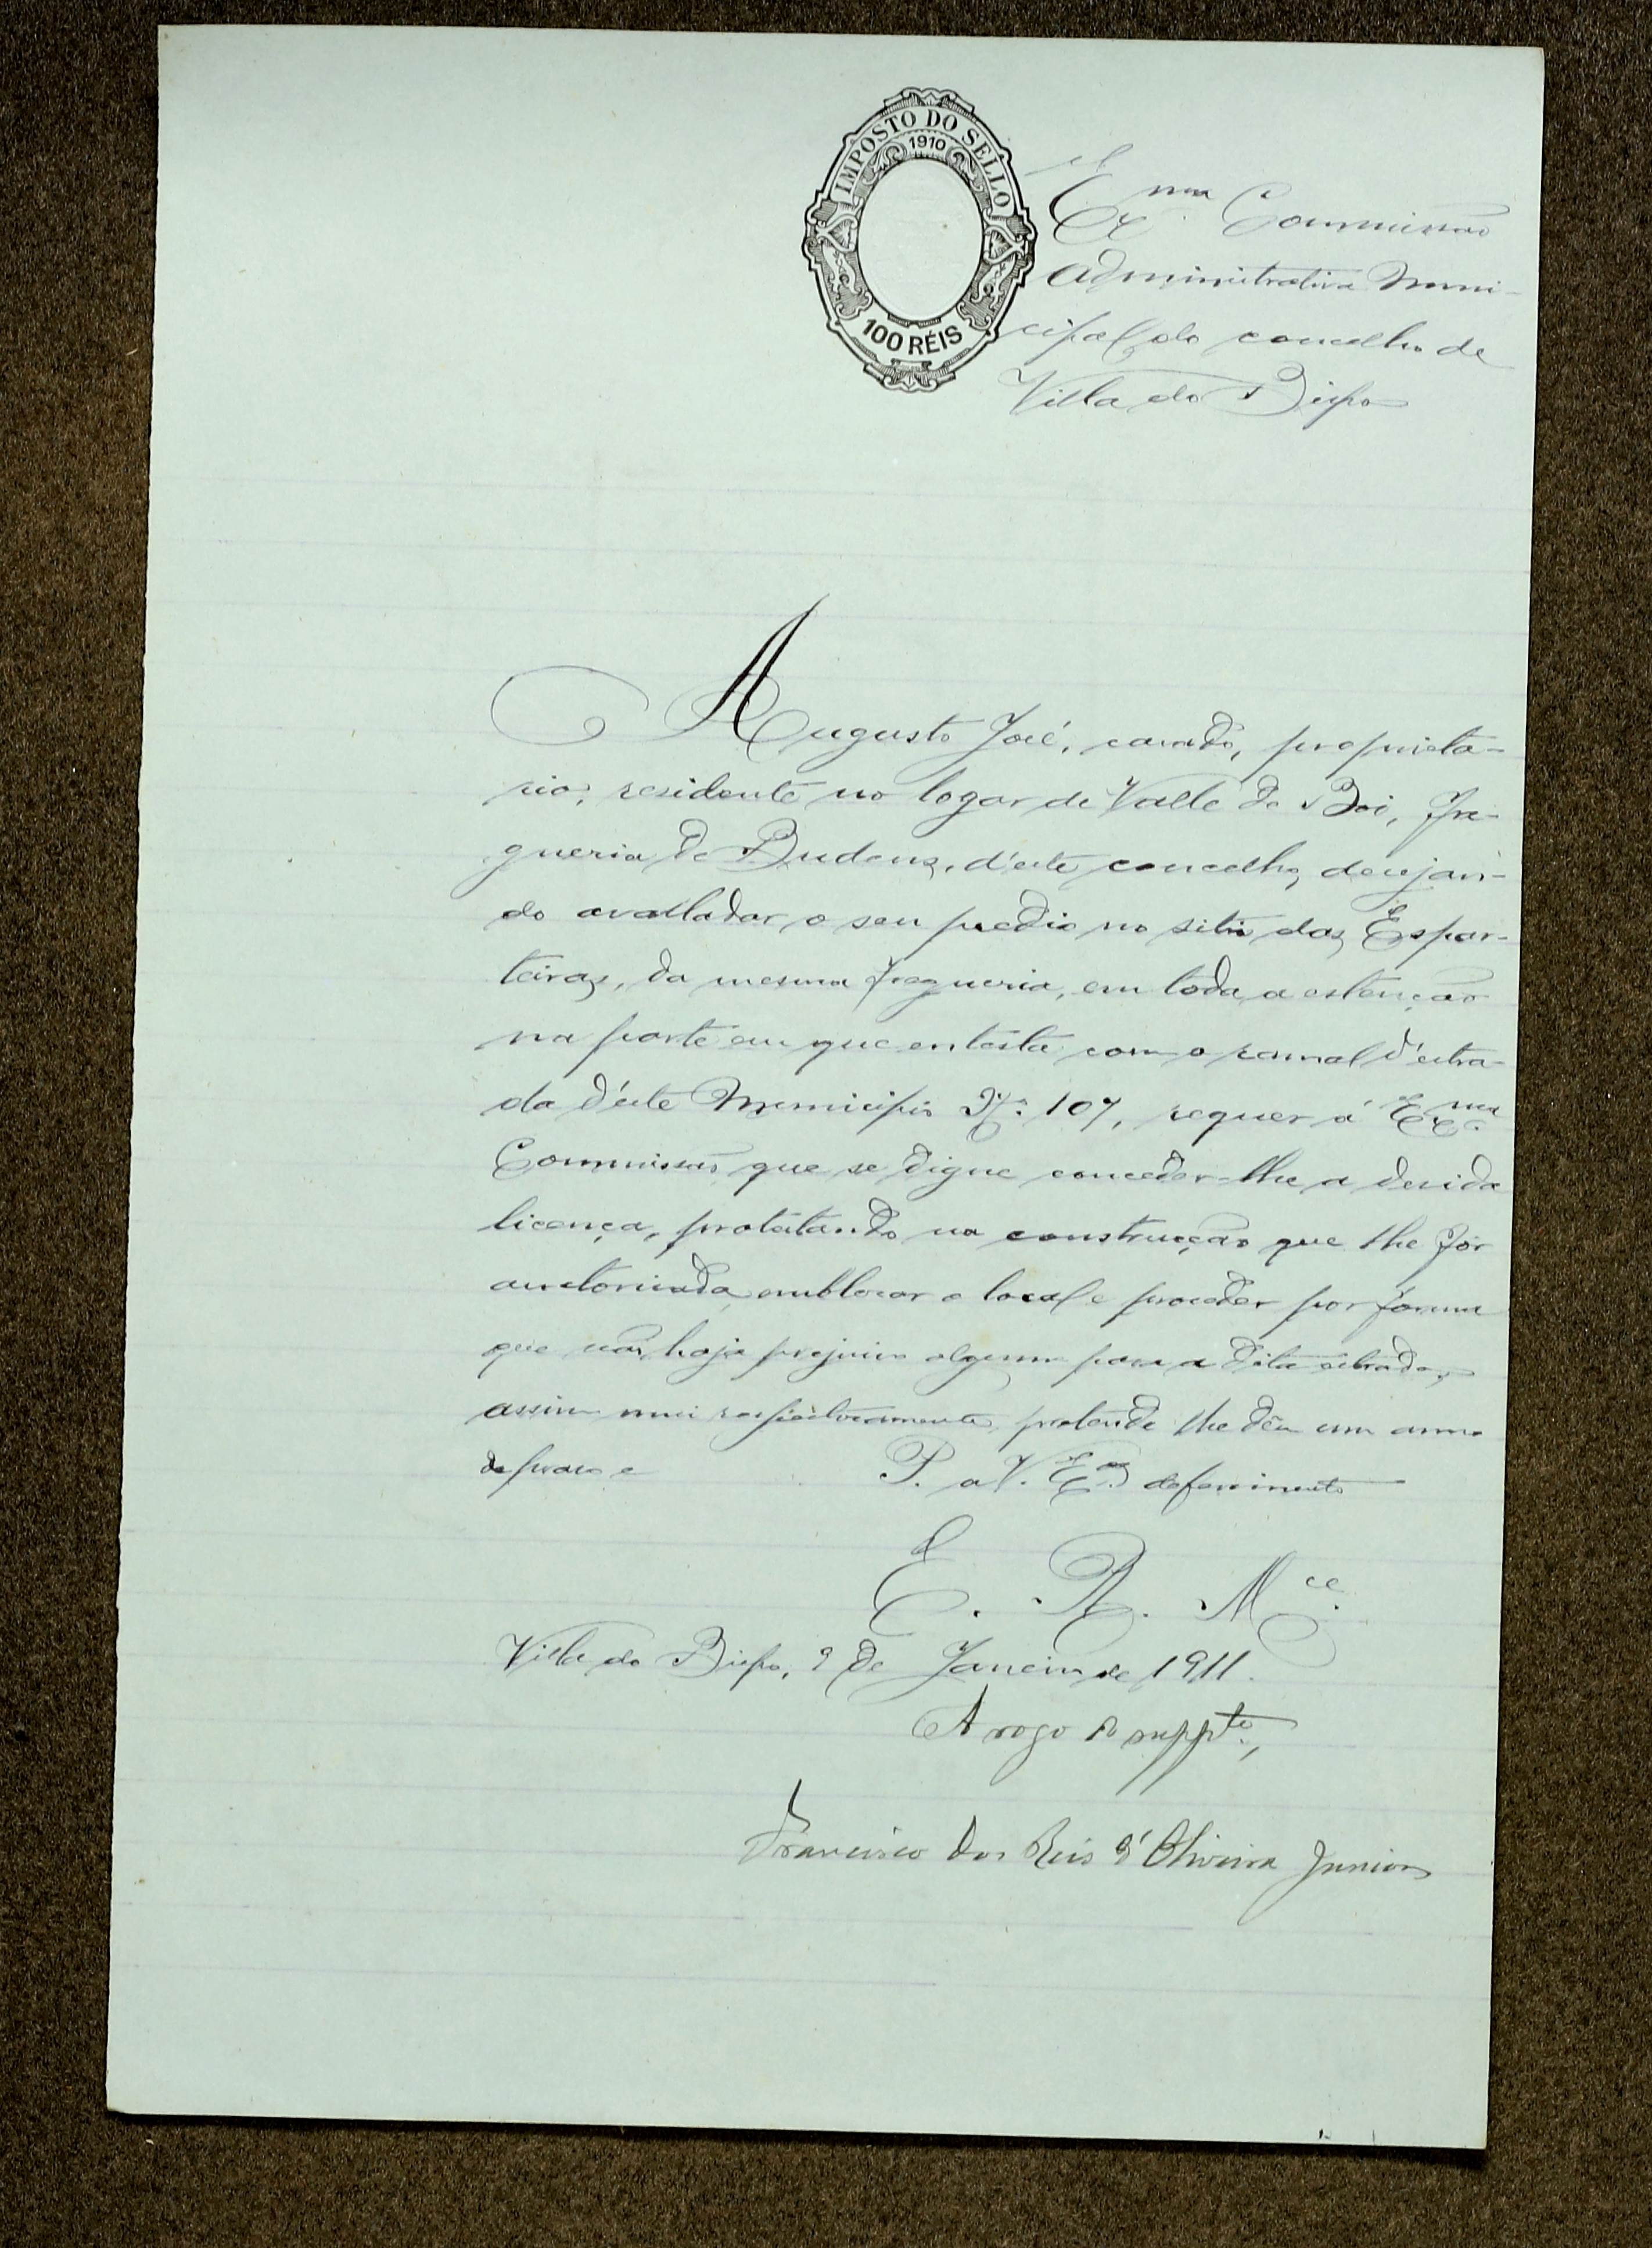 IMPOSTO DO SELLO
1910
100 RÉIS
Exma Commissão
Administrativa Muni-
cipal do concelho de
Villa do Bispo
Augusto José, casado, proprieta-
rio, residente no logar de Valle de Boi, fre-
guesia de Budens, d'este concelho, desejan-
do avalladar o seu predio no sitio das Espar-
teiras, da mesma freguesia, em toda a estenção
na parte em que entésta com o ramal d'estra-
da d'este Municipio Nº 107, requer á Exma
Commissão que se digne conceder-lhe a devida
licença, protestando na construcção que lhe fôr
auctorisada, o local e proceder por fórma
que não haja prejuiso algum para a dita estrada,
assim mui respeitosamente, pretende lhe dêem um anno
de praso e P. a V. Exas deferimento
E. R. Mce
Villa do Bispo, 9 de Janeiro de 1911.
A rogo do suppte,
Francisco dos Reis d'Oliveira Junior